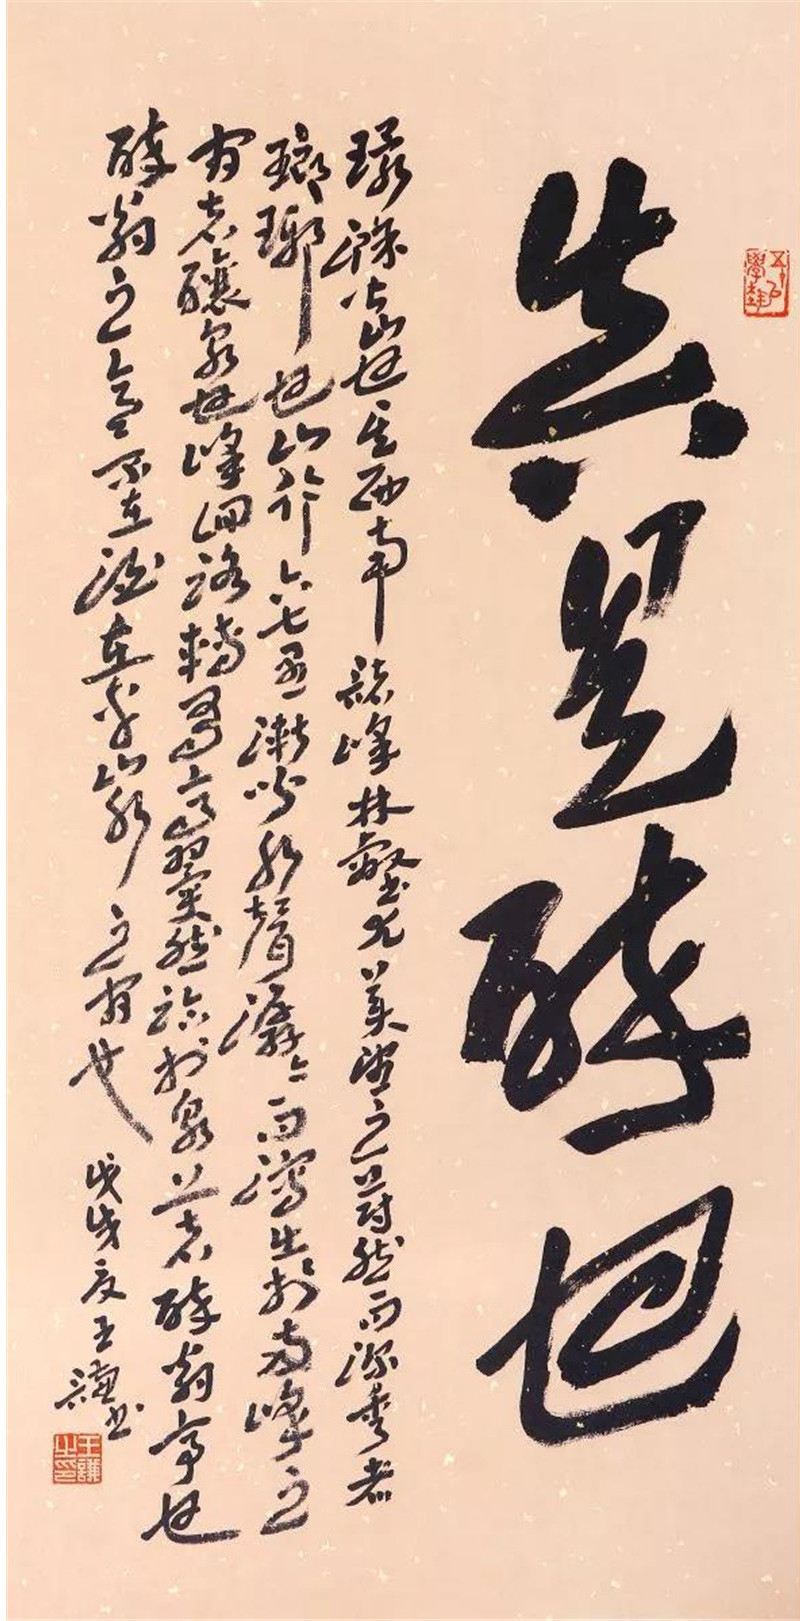 真是醉也
環滁皆山也其西南諸峰林壑尤美望之蔚然而深秀者
瑯琊也山行六七里漸聞水聲潺々而瀉出於兩峰之
間者釀泉也峰回路轉有亭翼然臨於泉上者醉翁亭也
醉翁之意不在酒在乎山水之間也
戊戌夏王謙書
王謙之印